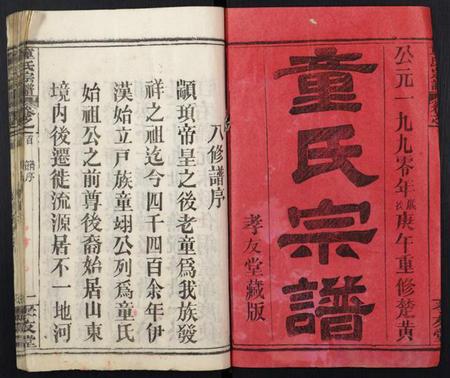 公元一九九零年歲次庚午重修楚黄
童氏宗譜
孝友堂藏版
八修譜序
顓頊帝皇之後老童為我族發
祥之祖迄今四千四百余年伊
漢始立戶族童翊公列為童氏
始祖公之前尊後裔始居山東
境内後遷徙流源居不一地河
童氏宗譜
譜序
孝友堂